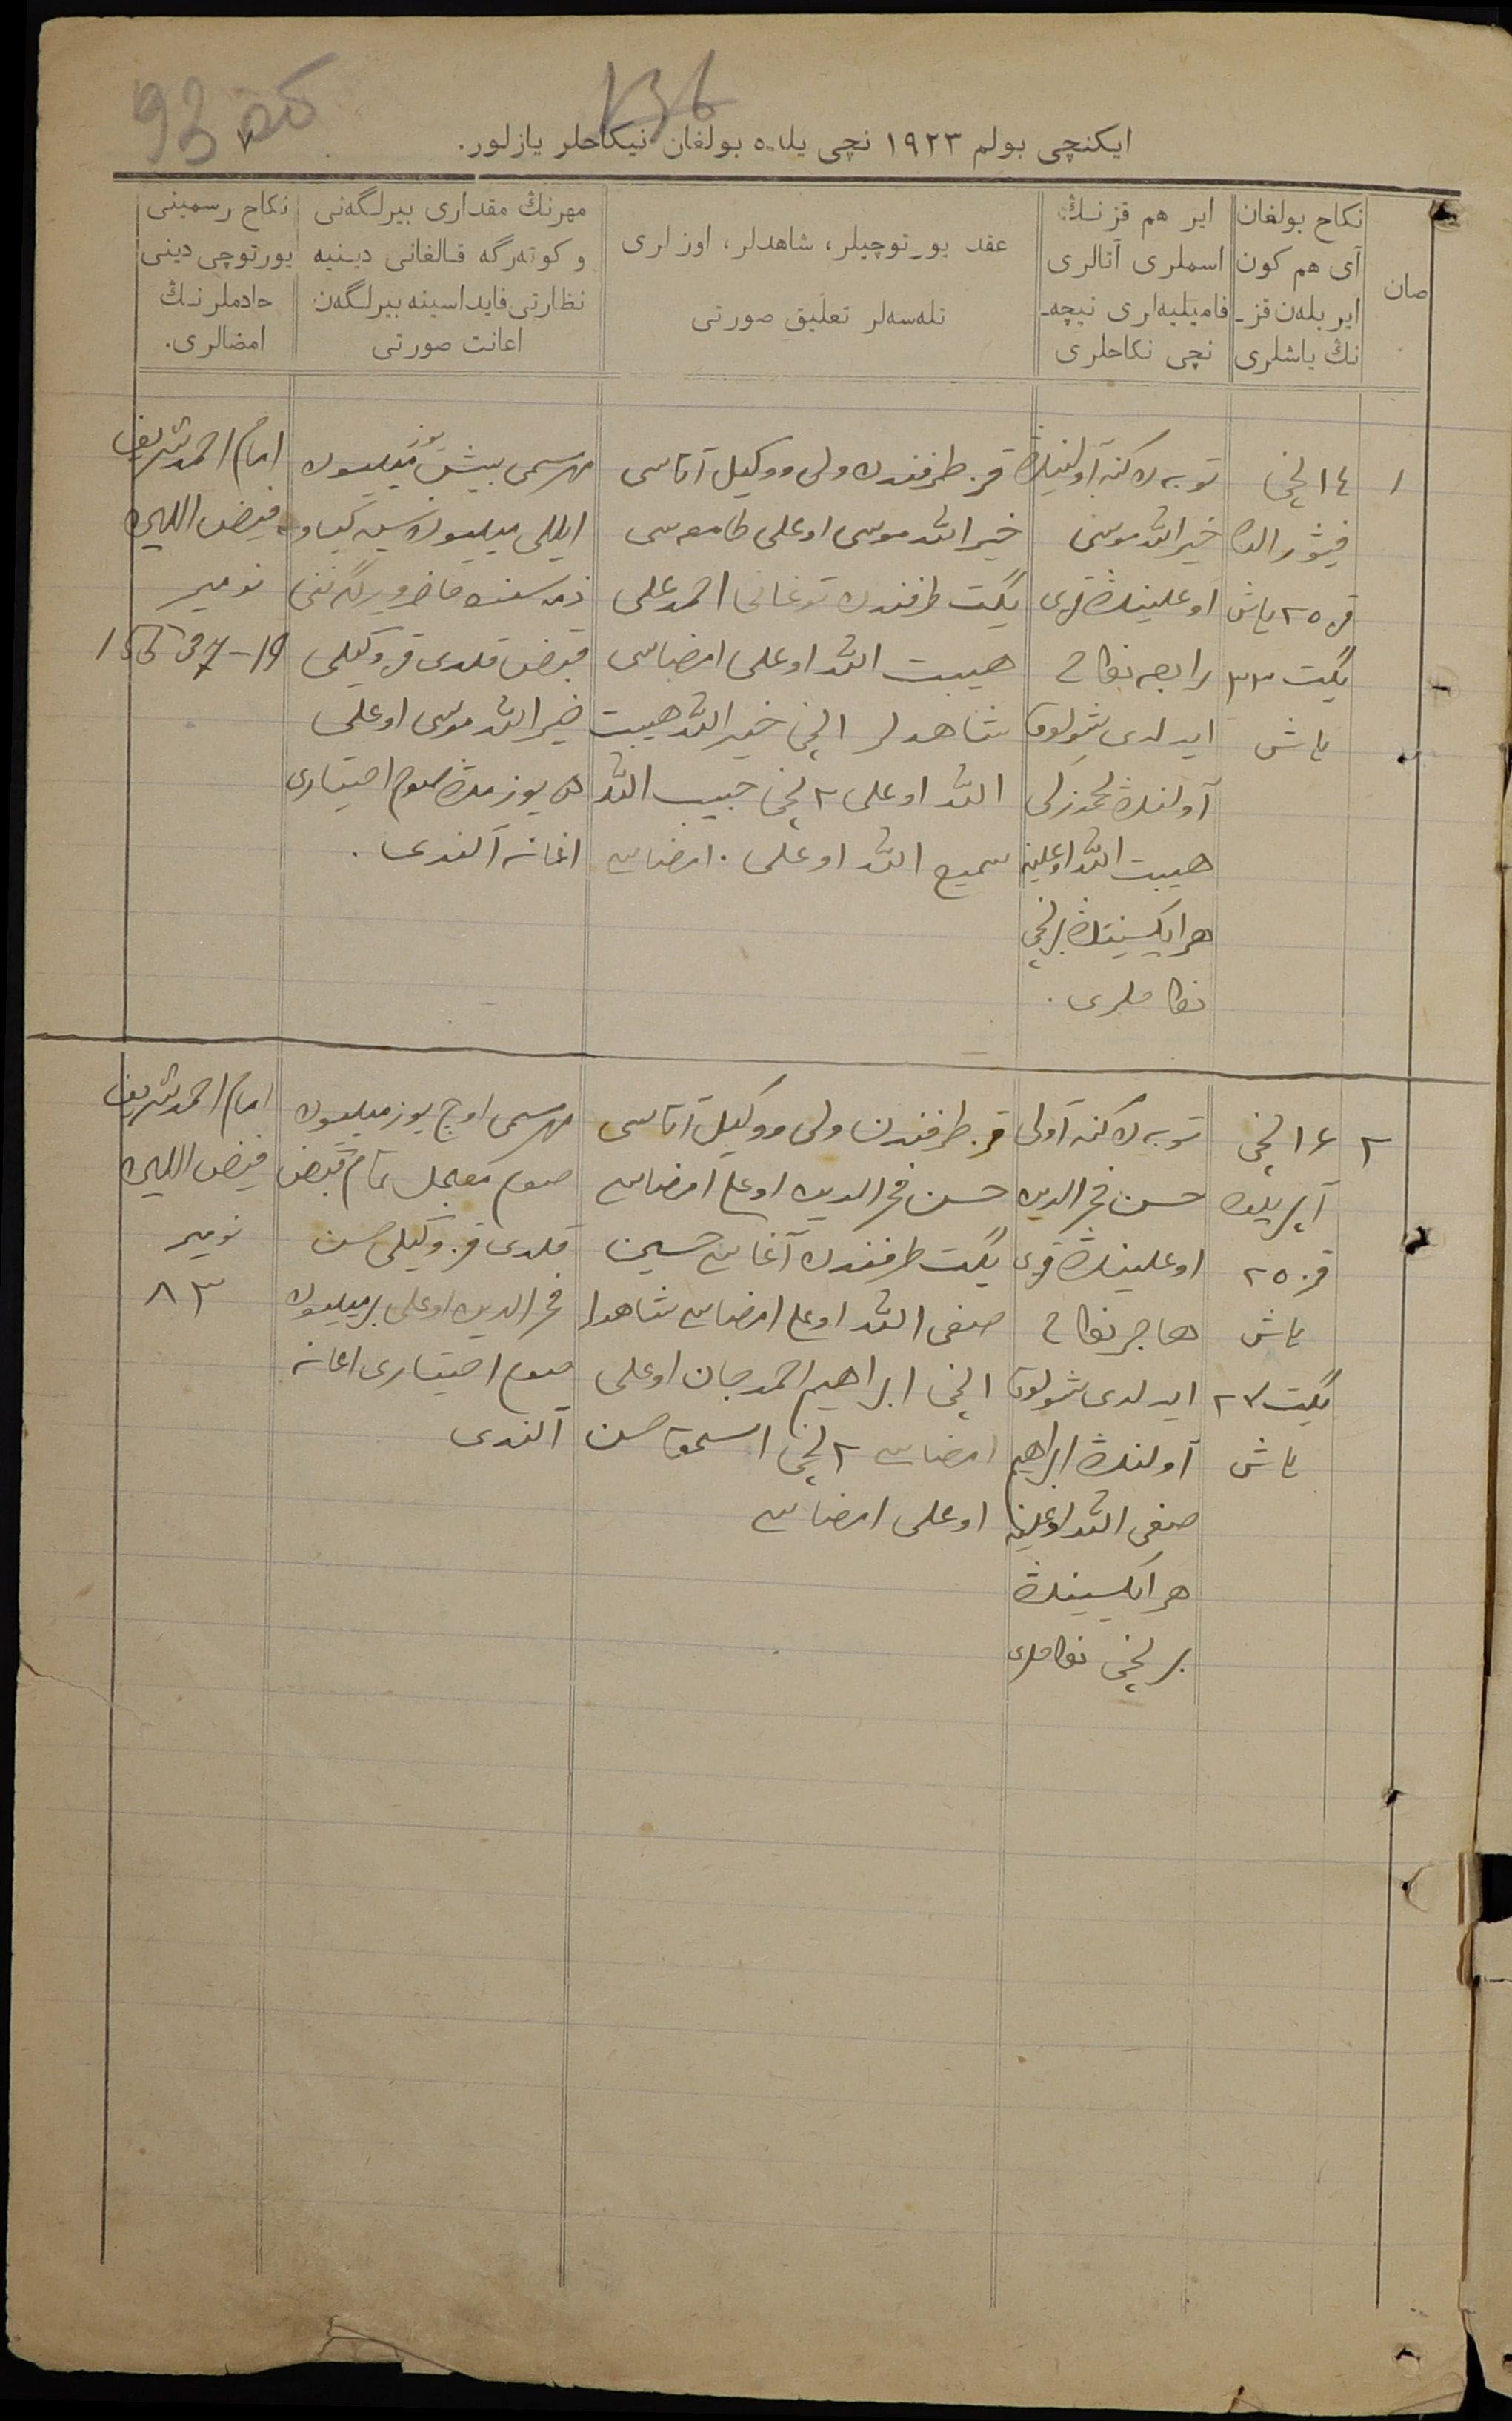 93
136
ایکنچی بولم ۱۹۲۳ نچی یلده بولغان نیکاحلر یازلور.
۷
صان
نکاح بولغان
آی هم کون
ایر بلەن قز-
نڭ یاشلری
ایر هم قزنڭ
اسملری آتالری
فامیلیەلری نیچە-
نچی نکاحلری
عقد یورتوچیلر، شاهدلر، اوزلری
تلەسەلر تعلیق صورتی
مهرنڭ مقداری بیرلگەنی
و کوتەرگە قالغانی دینیه
نظارتی فایداسینه بیرلگەن
اعانت صورتی
نکاح رسمینی
یورتوچی دینی
خادملرنڭ
امضالری.
۱
۱٤ نچی
قز ۲۵ یاش
یگت ۳۳
یاش
خیر الله موسی
اوغلینڭ قزی
رابعه نکاح
ایدلدی شولوق
آولنڭ محمدزکی
هیبت الله اوغلینه
هر ایکسینڭ برنچی
نکاحلری.
قز طرفندن ولی ووکیل آتاسی
خیر الله موسی اوغلی
یگت طرفندن توغانی احمدعلی
هیبت الله اوغلی امضاسی
شاهدلر ۱نچی خیر الله هیبت
الله اوغلی ۲نچی حبیب الله
سمیع الله اوغلی. امضاسی
مهرسمی بیش یوز میلیون
ایللی میلیون
قبض قلدی قز وکیلی
خیر الله موسی اوغلی
صوم اختیاری
اعانه آلندی.
امام احمدشریف
فیض اللهی
نومیر
19-
۲
۱۶ نچی
آپریلده
قز ۲۵
یاش
یگت ۲۷
یاش
حسن فخرالدین
اوغلینڭ قزی
هاجر نکاح
ایدلدی شولوق
آولنڭ ابراهیم
صفی الله اوغلینه
هر ایکسینڭ
برنچی نکاحلری
قز طرفندن ولی ووکیل آتاسی
حسن فخرالدین اوغلی امضاسی
یگت طرفندن آغاسی حسین
صفی الله اوغلی امضاسی شاهدلر
۱نچی ابراهیم احمدجان اوغلی
امضاسی ۲نچی اسحق حسن
اوغلی امضاسی
مهرسمی اوچ یوز میلیون
صوم معجل تمام قبض
قلدی قز وکیلی حسن
فخرالدین اوغلی بر میلیون
صوم اختیاری اعانه
آلندی
امام احمدشریف
فیض اللهی
نومیر
۸۳